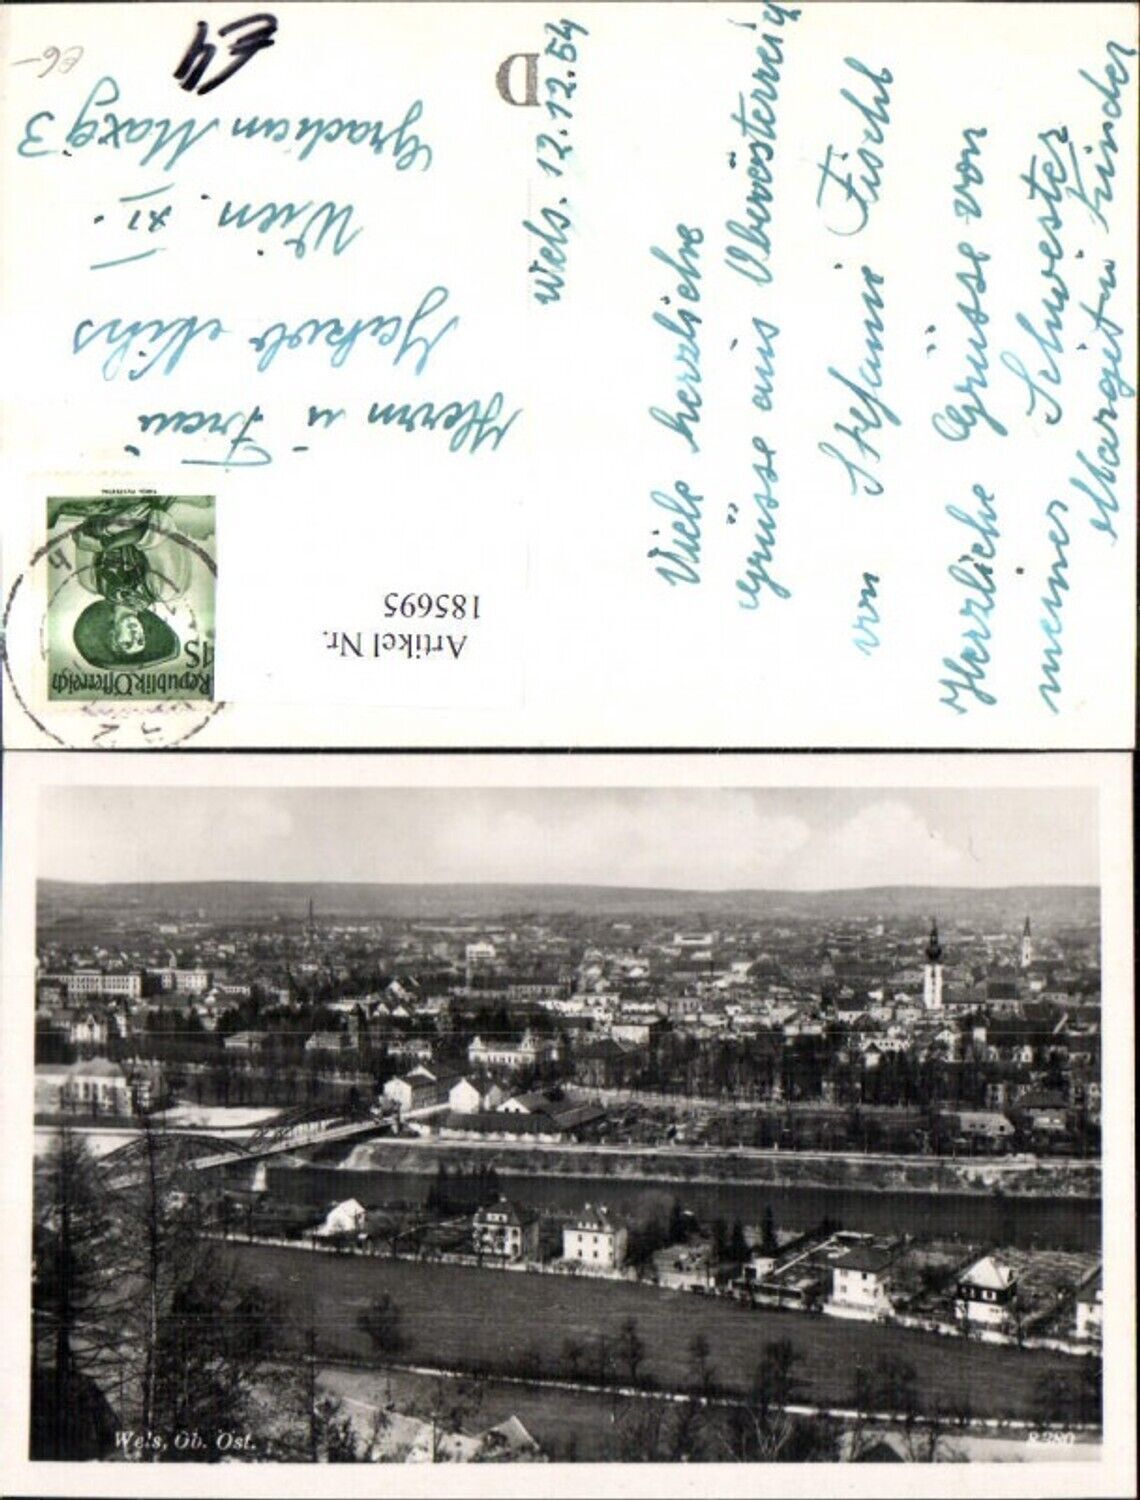 Wels. 12.12.54
Viele herzliche
Grüsse aus Oberösterreich
von Stefanie Fischl
Herzliche Grüsse von
meiner Schwester
Margit u Kinder
D
Herrn u Frau
Jakob
Wien. XI.
3
E4
€6-
Artikel Nr.
185695
Republik Österreich
1S
Wels, Ob. Öst.
8380